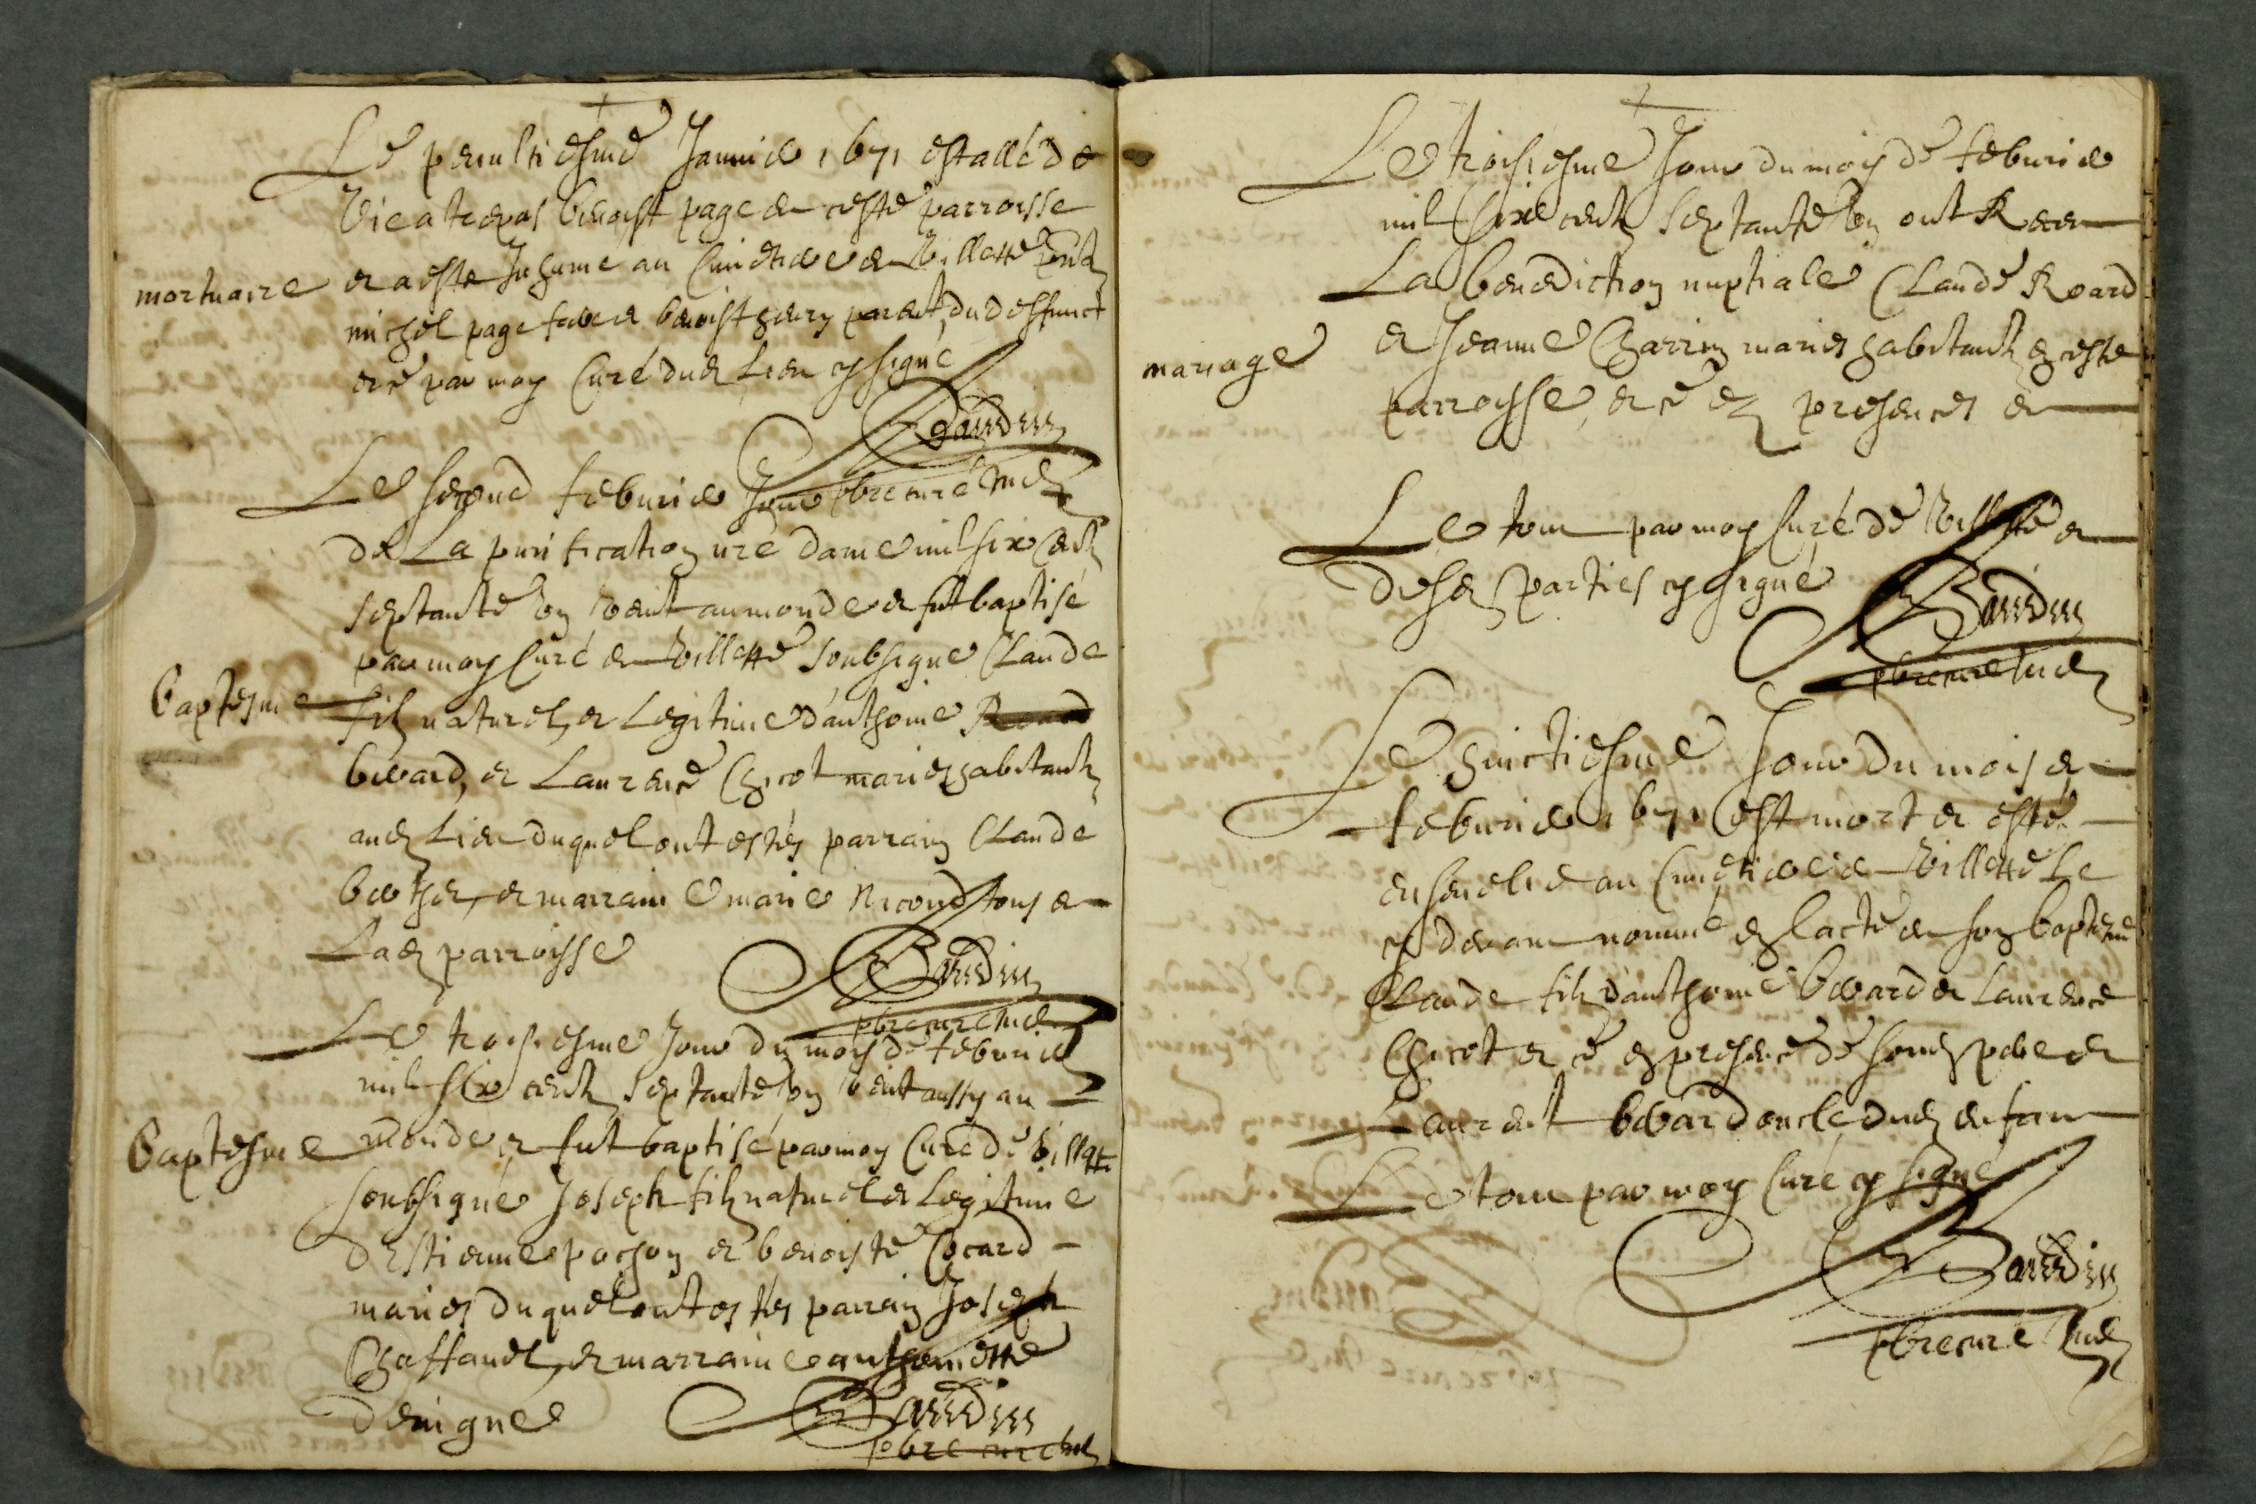 Le penultiesme Januier 1671 est allé de
vie a trepas benoist page de ceste parroisse
mortuaire
et a esté Inhumé au Cimetiere de Villette pntz
michel page frere et benoist henry parent, dud deffunct
et ce par moy Curé dud Lieu cy signé
Baudin
pbre curé sud
Le second feburier Jour
de La purification nre dame mil six centz
septante un vint au monde et fut baptisé
par moy Curé de Villette soubsigné Claude
Baptesme
filz naturel, et Legitime d'anthoine
berard, et Laurence Chicot mariez habitantz
aud Lieu duquel ont estés parrain Claude
berthet, et marraine marie Nicoud tous de
Lad parroisse
Baudin
pbre curé sud
Le troisiesme Jour du moys de feburier
mil six centz septante un vint aussy au
Baptesme
monde et fut baptisé par moy Curé de Villette
soubsigné Joseph filz naturel et Legitime
d'Estienne pochon et benoiste Cocard
maries duquel ont estés parrain Joseph
Chaffanel, et marraine anthoinette
Baudin
pbre curé sud
Le troisiesme Jour du moys de feburier
mil six centz septante un ont Receu
La benediction nuptiale Claude Roard
mariage
et Jeanne Charrin maries habitantz en ceste
parroysse, et ce en presences de
Le tout par moy Curé de Villette et
desd parties cy signé
Baudin
pbre curé sud
Le huictiesme Jour du mois de
feburier 1671 est mort et esté
enseueli au Cimetiere de Villette Le
cy deuant nommé en lacte de son baptesme
Claude filz d'anthoine berard et Laurence
Chicot et ce en presence de sond pere et
Laurent berard oncle, dud enfant
Le tout par moy Curé cy signé
Baudin
pbre curé sud